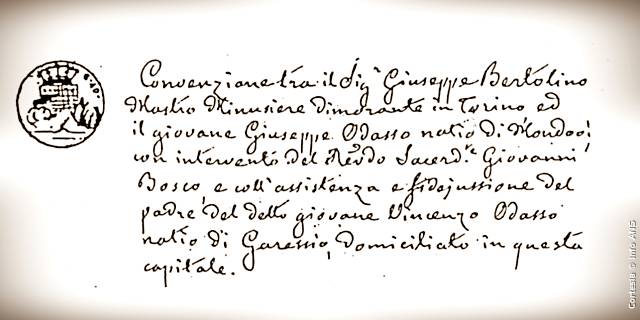 Convenzione tra il Sigr Giuseppe Bertolino
Mastro Minusiere dimorante in Torino ed
il giovane Giuseppe Odasso natio di Mondovì
con intervento del Revdo Sacerde. Giovanni
Bosco, e coll'assistenza e fidejussione del
padre del detto giovane Vincenzo Odasso
natio di Garessio, domiciliato in questa
capitale.
Cortesia © Info ANS